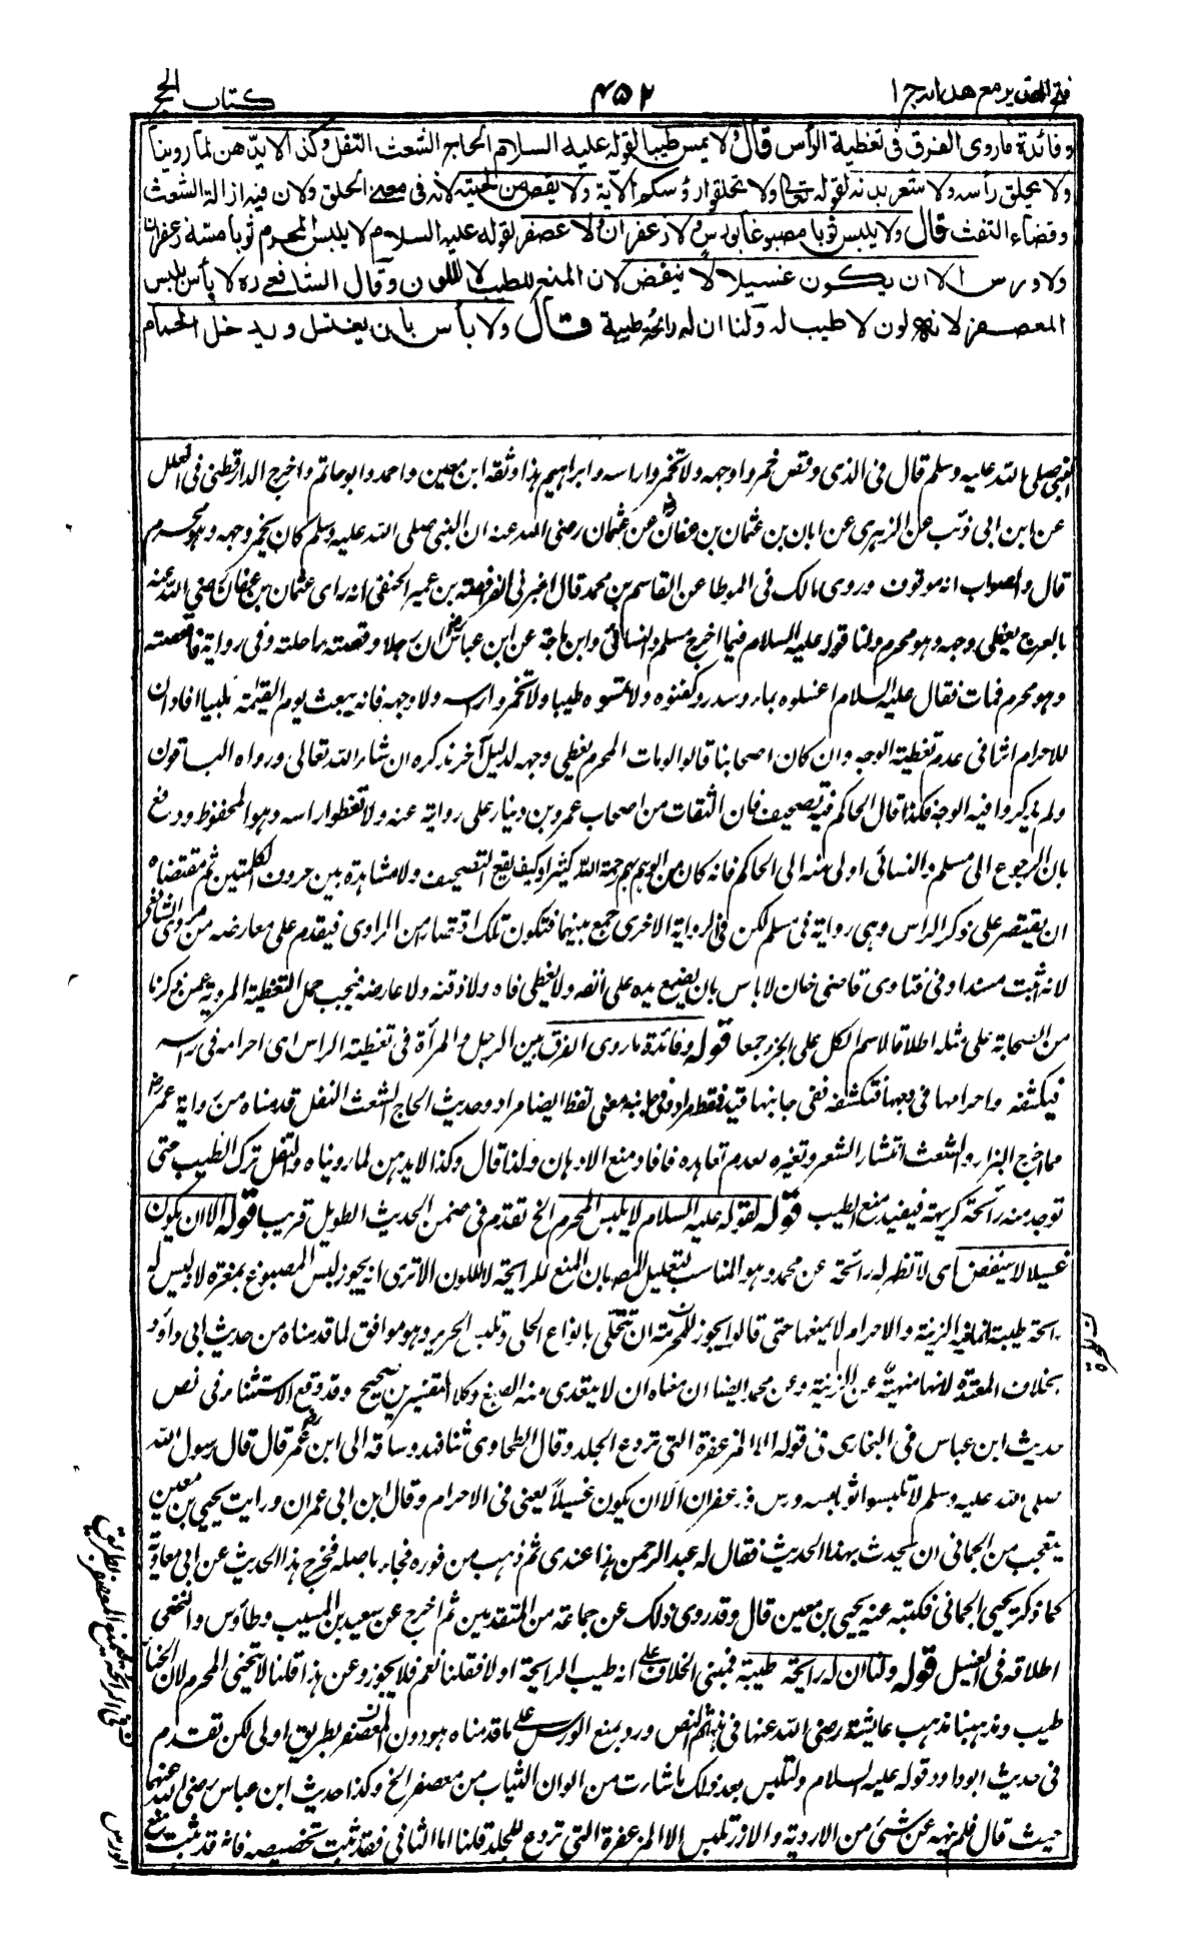 فتح القدير مع هدايه ج ١
٤٥٢
كتاب الحج
وفائدة ماروى الفرق فى تغطية الرأس قال ولا يمس طيبا لقوله عليه السلام الحاج الشعث التفل وكذا لا يدهن لما روينا
ولا يحلق رأسه ولا شعر بدنه لقوله تعالى ولا تحلقوا رؤسكم الآية ولا يقص من لحيته لانه فى معنى الحلق ولان فيه ازالة الشعث
وقضاء التفث قال ولا يلبس ثوبا مصبوغا بورس ولا زعفران ولا عصفر لقوله عليه السلام لا يلبس المحرم ثوبا مسه زعفران
ولا ورس الا ان يكون غسيلا لا ينفض لان المنع للطيب لا للون وقال الشافعى ره لا بأس بلبس
المعصفر لانه لون لا طيب له ولنا ان له رائحة طيبة قال ولا بأس بان يغتسل ويدخل الحمام
النبى صلى الله عليه وسلم قال فى الذى وقص خمروا وجهه ولا تخمروا راسه وابراهيم هذا وثقه ابن معين واحمد وابو حاتم واخرج الدارقطنى فى العلل
عن ابن ابى ذئب عن الزهرى عن ابان بن عثمان بن عفان عن عثمان رضى الله عنه ان النبى صلى الله عليه وسلم كان يخمر وجهه وهو محرم
قال والصواب انه موقوف وروى مالك فى الموطا عن القاسم بن محمد قال اخبرنى الفرافصة بن عمير الحنفى انه راى عثمان بن عفان رضى الله عنه
بالعرج يغطى وجهه وهو محرم ولنا قوله عليه السلام فيما اخرج مسلم والنسائى وابن ماجة عن ابن عباس رض ان رجلا وقصته راحلته وفى رواية فاقعصته
وهو محرم فمات فقال عليه السلام اغسلوه بماء وسدر وكفنوه ولا تمسوه طيبا ولا تخمروا راسه ولا وجهه فانه يبعث يوم القيمة ملبيا افاد ان
للاحرام اثرا فى عدم تغطية الوجه وان كان اصحابنا قالوا لو مات المحرم يغطى وجهه لدليل آخر نذكره ان شاء الله تعالى ورواه الباقون
ولم يذكروا فيه الوجه فلذا قال الحاكم فيه تصحيف فان الثقات من اصحاب عمرو بن دينار على رواية عنه ولا تغطوا راسه وهو المحفوظ ودفع
بان الرجوع الى مسلم والنسائى اولى منه الى الحاكم فانه كان من الوهم رحمة الله كثيرا وكيف يقع التصحيف ولا مشابهة بين حروف الكلمتين ثم مقتضاه
ان يقتصر على ذكر الراس وهى رواية فى مسلم لكن فى الرواية الاخرى جمع بينهما فتكون تلك اقتصارا من الراوى فيقدم على معارضه من مروى الشافعى رح
لانه اثبت سندا وفى فتاوى قاضى خان لا باس بان يضع يده على انفه ولا يغطى فاه ولا ذقنه ولا عارضه فيجب حمل التغطية المروية عمن ذكرنا
من الصحابة على مثله اطلاقا لاسم الكل على الجزء جمعا قوله وفائدة ماروى الفرق بين الرجل والمرأة فى تغطية الراس اى احرامه فى راسه
فيكشفه واحرامها فى وجهها فتكشفه ففى جانبها قيد فقط مراد وفى جانبه معنى لفظ ايضا مراد وحديث الحاج الشعث التفل قدمناه من رواية عمر رض
مما اخرج البزار والشعث انتشار الشعر وتغيره لعدم تعاهده فافاد منع الادهان ولذا قال وكذا لا يدهن لما روينا ه والتفل ترك الطيب حتى
توجد منه رائحة كريهة فيفيد منع الطيب قوله لقوله عليه السلام لا يلبس المحرم الخ تقدم فى ضمن الحديث الطويل قريبا قوله الا ان يكون
غسيلا لا ينفض اى لا تظهر له رائحة عن محمد وهو المناسب لتعليل المص بان المنع للرايحة لا للون الا ترى انه يجوز لبس المصبوغ بمغرة لانه ليس له
رايحة طيبة انما فيه الزينة والاحرام لا يمنعها حتى قالوا يجوز للمحرمة ان تتحلى بانواع الحلى وتلبس الحرير وهو موافق لما قدمناه من حديث ابى داؤد
بخلاف المعتدة لانها منهية عن الزينة وعن محمد ايضا ان معناه ان لا يتعدى منه الصبغ وكلا التفسيرين صحيح وقد وقع الاستثناء فى نص
حديث ابن عباس فى البخارى فى قوله الا المزعفرة التى تردع الجلد وقال الطحاوى ثنا فهد وساقه الى ابن عمر رض قال قال رسول الله
صلى الله عليه وسلم لا تلبسوا ثوبا مسه ورس وزعفران الا ان يكون غسيلا يعنى فى الاحرام وقال ابن ابى عمران ورايت يحيى بن معين
يتعجب من الحمانى ان يحدث بهذا الحديث فقال له عبد الرحمن هذا عندى ثم ذهب من فوره فجاء باصله فخرج هذا الحديث عن ابى معاوية
كما ذكره يحيى الحمانى فكتبه عنه يحيى بن معين قال وقد روى ذلك عن جماعة من المتقدمين ثم اخرج عن سعيد بن المسيب وطاؤس والنخعى
اطلاقه فى الغسيل قوله ولنا ان له رايحة طيبة فمبنى الخلاف على انه طيب الرايحة اولا فقلنا نعم فلا يجوز وعن هذا قلنا لا يتحنى المحرم لان الحناء
طيب ومذهبنا مذهب عايشة رضى الله عنها فى هذا ثم النص ورد بمنع الورس على ما قدمناه وهو دون المعصفر بطريق اولى لكن تقدم
فى حديث ابو داود قوله عليه السلام ولتلبس بعد ذلك ما شاءت من الوان الثياب من معصفر الخ وكذا حديث ابن عباس رضى الله عنهما
حيث قال فلم ينه عن شئ من الاردية والازر تلبس الا المزعفرة التى تردع للجلد قلنا اما الثانى فقد ثبت تخصيصه فانه قد ثبت منع
الورس